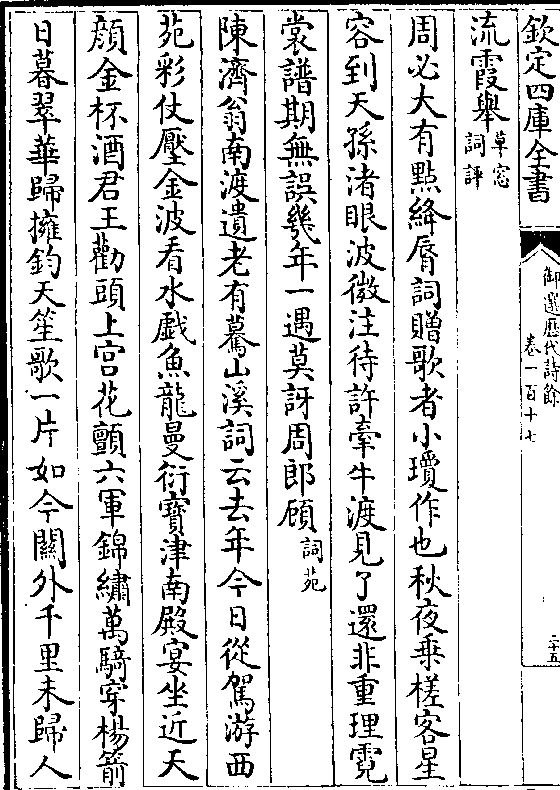 欽定四庫全書
御選歷代詩餘
卷一百十七
二十五
流霞舉草窓詞評
周必大有點絳脣詞贈歌者小瓊作也秋夜乗槎客星
容到天孫渚眼波微注待許牽牛渡見了還非重理霓
裳譜期無誤幾年一遇莫訝周郎顧詞苑
陳濟翁南渡遺老有驀山溪詞云去年今日從駕游西
苑彩仗壓金波看水戲魚龍曼衍寳津南殿宴坐近天
顔金杯酒君王勸頭上宫花顫六軍錦繡萬騎穿楊箭
日暮翠華歸擁鈞天笙歌一片如今關外千里未歸人